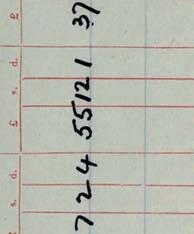 £ s. d. £ s. d. £
7 2 4 55 12 1 37